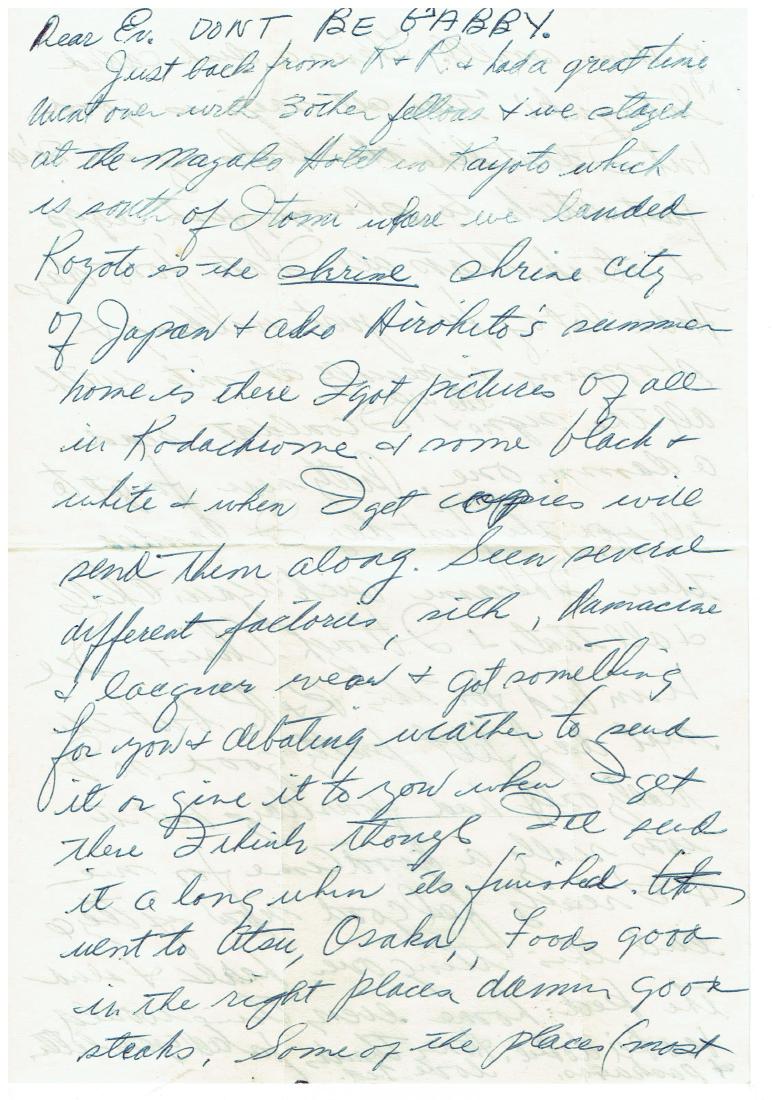 Dear Ev. DONT BE GABBY.
Just back from R + R. & had a great time
Went over with 3 other fellows & we stayed
at the Mayako Hotel in Kayoto which
is south of Itomi where we landed
Koyoto is the shrine shrine city
of Japan & also Hirohito's summer
home is there I got pictures of all
in Kodachrome & some black &
white & when I get copies will
send them along. Seen several
different factories, silk, Damacine
& lacquer wear & got something
for you & debating weather to send
it or give it to you when I get
there I think though I'll send
it a long when its finished.
went to Otsu, Osaka, Foods good
in the right places damn good
steaks, Some of the places (most